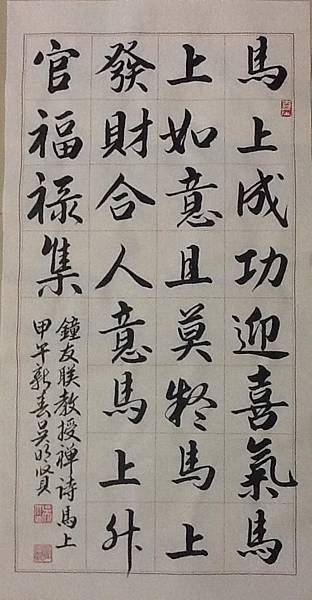 馬上成功迎喜氣馬
上如意且莫疑馬上
發財合人意馬上升
官福祿集
鐘友联教授禪詩馬上
甲午新春吴明